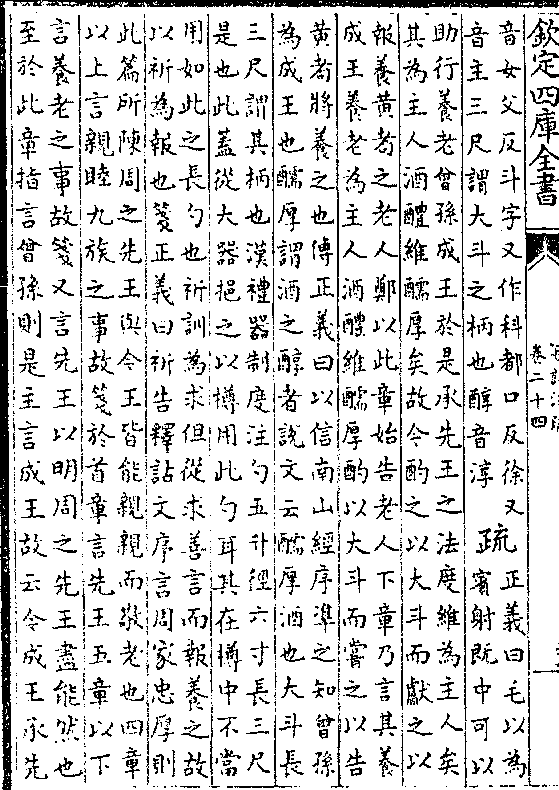 欽定四庫全書
卷二十四
音女父反斗字又作科都口反徐又
音主三尺謂大斗之柄也醇音淳
疏
正義曰毛以為
賓射既中可以
助行養老曾孫成王於是承先王之法度維為主人矣
其為主人酒醴維醹厚矣故令酌之以大斗而獻之以
報養黃耇之老人鄭以此章始告老人下章乃言其養
成王養老為主人酒醴維醹厚酌以大斗而嘗之以告
黃耇將養之也傳正義曰以信南山經序準之知曾孫
為成王也醹厚謂酒之醇者說文云醹厚酒也大斗長
三尺謂其柄也漢禮器制度注勺五升徑六寸長三尺
是也此蓋從大器挹之以樽用此勺耳其在樽中不當
用如此之長勺也祈訓為求但從求善言而報養之故
以祈為報也箋正義曰祈告釋詁文序言周家忠厚則
此篇所陳周之先王與今王皆能親親而敬老也四章
以上言親睦九族之事故箋於首章言先王五章以下
言養老之事故箋又言先王以明周之先王盡能然也
至於此章指言曾孫則是主言成王故云令成王承先